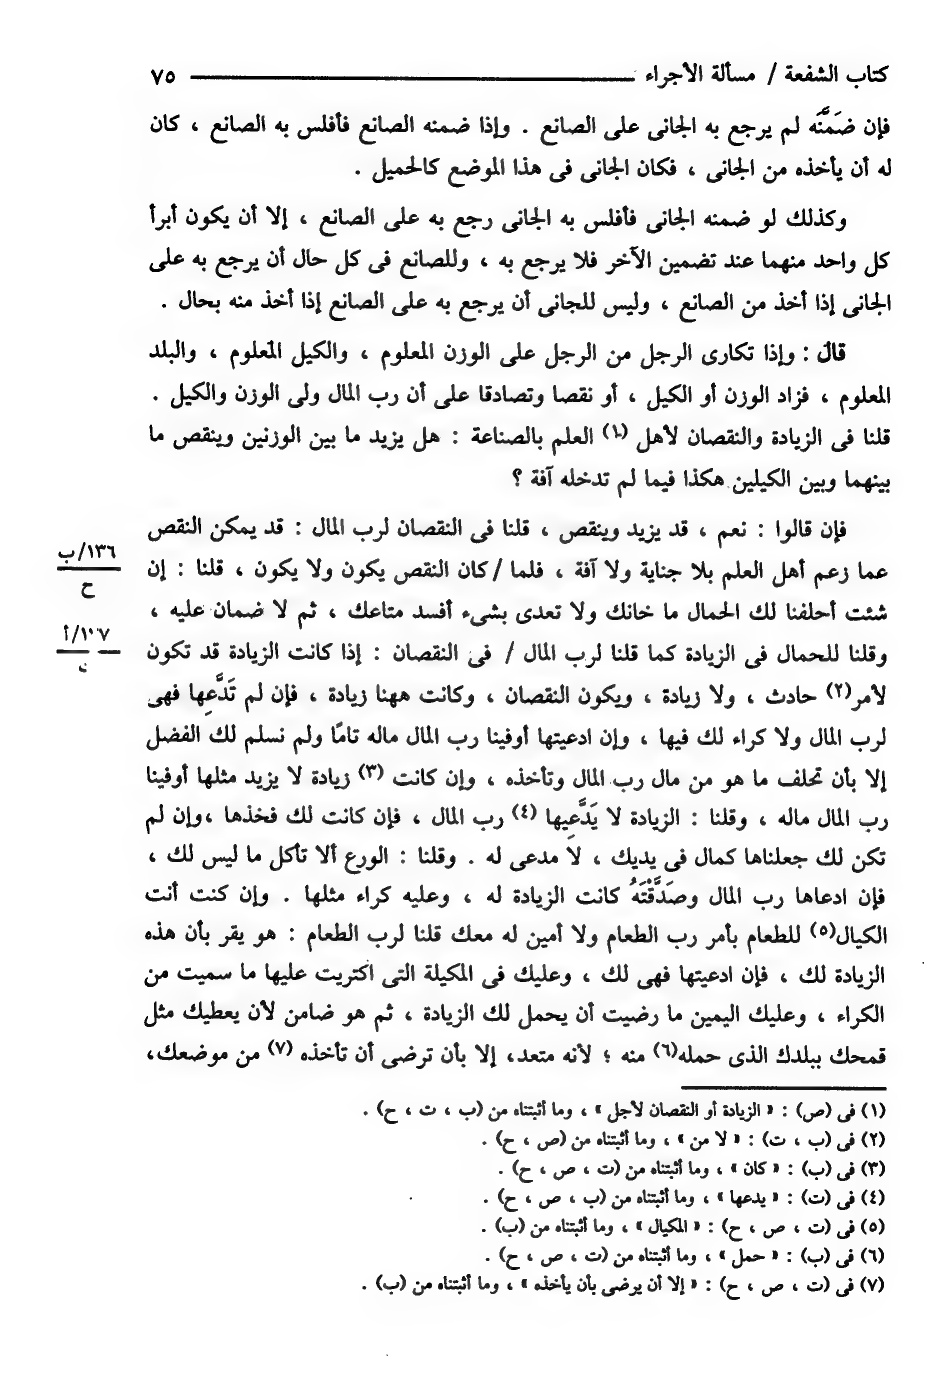 كتاب الشفعة / مسألة الأجراء ٧٥
فإن ضَمَّنَه لم يرجع به الجانى على الصانع . وإذا ضمنه الصانع فأفلس به الصانع ، كان
له أن يأخذه من الجانى ، فكان الجانى فى هذا الموضع كالحميل .
وكذلك لو ضمنه الجانى فأفلس به الجانى رجع به على الصانع ، إلا أن يكون أبرأ
كل واحد منهما عند تضمين الآخر فلا يرجع به ، وللصانع فى كل حال أن يرجع به على
الجانى إذا أخذ من الصانع ، وليس للجانى أن يرجع به على الصانع إذا أخذ منه بحال .
قال : وإذا تكارى الرجل من الرجل على الوزن المعلوم ، والكيل المعلوم ، والبلد
المعلوم ، فزاد الوزن أو الكيل ، أو نقصا وتصادقا على أن رب المال ولى الوزن والكيل .
قلنا فى الزيادة والنقصان لأهل (١) العلم بالصناعة : هل يزيد ما بين الوزنين وينقص ما
بينهما وبين الكيلين هكذا فيما لم تدخله آفة ؟
فإن قالوا : نعم ، قد يزيد وينقص ، قلنا فى النقصان لرب المال : قد يمكن النقص
عما زعم أهل العلم بلا جناية ولا آفة ، فلما / كان النقص يكون ولا يكون ، قلنا : إن
١٣٦/ب
ح
شئت أحلفنا لك الحمال ما خانك ولا تعدى بشىء أفسد متاعك ، ثم لا ضمان عليه ،
وقلنا للحمال فى الزيادة كما قلنا لرب المال / فى النقصان : إذا كانت الزيادة قد تكون
لأمر(٢) حادث ، ولا زيادة ، ويكون النقصان ، وكانت ههنا زيادة ، فإن لم تَدَّعِها فهى
لرب المال ولا كراء لك فيها ، وإن ادعيتها أوفينا رب المال ماله تامًا ولم نسلم لك الفضل
إلا بأن تحلف ما هو من مال رب المال وتأخذه ، وإن كانت (٣) زيادة لا يزيد مثلها أوفينا
رب المال ماله ، وقلنا : الزيادة لا يَدَّعِيها (٤) رب المال ، فإن كانت لك فخذها ،وإن لم
تكن لك جعلناها كمال فى يديك ، لا مدعى له . وقلنا : الورع ألا تأكل ما ليس لك ،
فإن ادعاها رب المال وصَدَّقْتَهُ كانت الزيادة له ، وعليه كراء مثلها . وإن كنت أنت
الكيال(٥) للطعام بأمر رب الطعام ولا أمين له معك قلنا لرب الطعام : هو يقر بأن هذه
الزيادة لك ، فإن ادعيتها فهى لك ، وعليك فى المكيلة التى اكتريت عليها ما سميت من
الكراء ، وعليك اليمين ما رضيت أن يحمل لك الزيادة ، ثم هو ضامن لأن يعطيك مثل
قمحك ببلدك الذى حمله(٦) منه ؛ لأنه متعد، إلا بأن ترضى أن تأخذه (٧) من موضعك،
(١) فى (ص) : « الزيادة أو النقصان لأجل » ، وما أثبتناه من (ب ، ت ، ح) .
(٢) فى (ب ، ت) : « لا من » ، وما أثبتناه من (ص ، ح) .
(٣) فى (ب) : « كان » ، وما أثبتناه من (ت ، ص ، ح) .
(٤) فى (ت) : « يدعها » ، وما أثبتناه من (ب ، ص ، ح) .
(٥) فى (ت ، ص ، ح) : « المكيال » ، وما أثبتناه من (ب) .
(٦) فى (ب) : « حمل » ، وما أثبتناه من (ت ، ص ، ح) .
(٧) فى (ت ، ص ، ح) : « إلا أن يرضى بأن يأخذه » ، وما أثبتناه من (ب) .